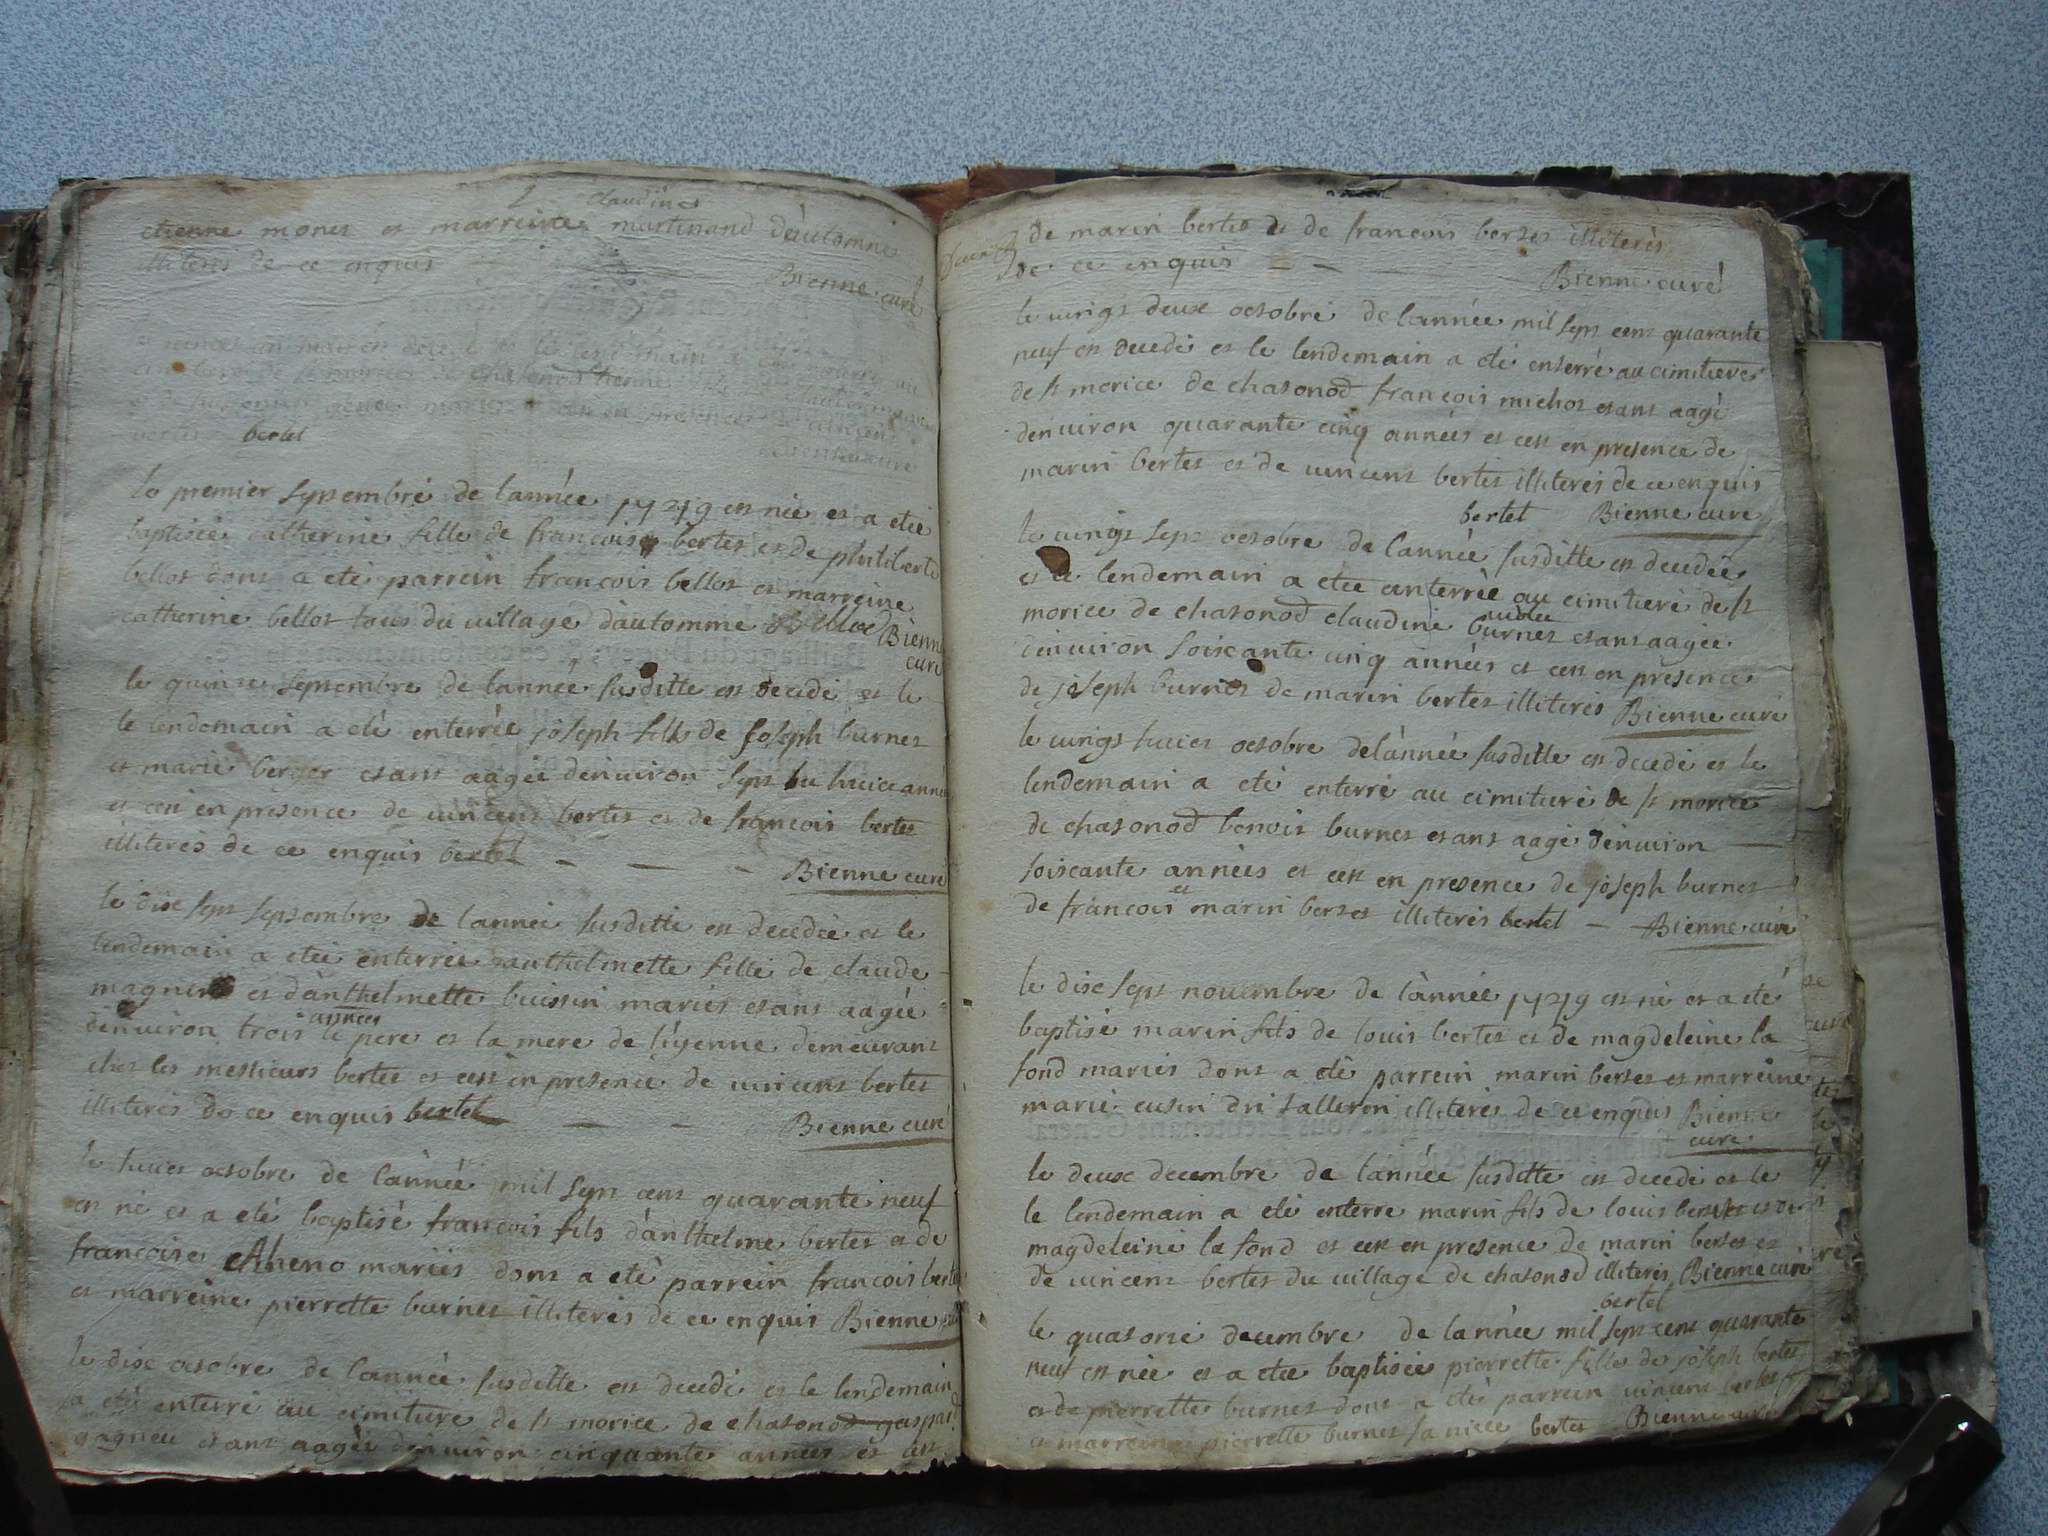 claudine
etienne monet et marreine martinand d'automne
illiteres de ce enquis
Bienne curé
bertet
Bienne curé
le premier septembre de lannée 1749 est née et a etée
baptisée catherine fille de francois bertet et de philiberte
bellot dont a eté parrein francois bellot et marreine
catherine bellot tous du village d'automme Bienne
curé
le quinze septembre de lannée susditte est decedé et le
le lendemain a eté enterrée joseph fils de joseph burnet
et marie berger etant aagée denuiron sept ou huict années
et cest en presence de uincent bertet et de francois bertet
illiteres de ce enquis bertet
Bienne curé
le dixsept septembre de lannée susditte est decedée et le
lendemain a etée enterrée anthelmette fille de claude
magnin et d'anthelmette buissin mariés etant aagée
années
denuiron trois le pere et la mere de liyenne demeurant
ches les messieurs bertet et cest en presence de uincent bertet
illiteres de ce enquis bertet
Bienne curé
le huict octobre de l'année mil sept cent quarante neuf
est né et a eté baptisé francois fils d'anthelme bertet et de
francoise mariés dont a eté parrein francois bertet
et marreine pierrette burnet illiteres de ce enquis Bienne curé
le dix octobre de lannée susditte est decedé et le lendemain
a eté enterré au cimitiere de st morice de chatonod gaspard
gagneu etant aagée denuiron cinquante années et cest
de marin bertet et de francois bertet illiteres
de ce enquis
Bienne curé
le uingt deux octobre de lannée mil sept cent quarante
neuf est decedé et le lendemain a eté enterré au cimitiere
de st morice de chatonod francois michot etant aagé
denuiron quarante cinq années et cest en presence de
marin bertet et de uincent bertet illiteres de ce enquis
bertet Bienne curé
le uingt sept octobre de lannée susditte est decedée
et le lendemain a etée enterrée au cimitiere de st
morice de chatonod claudine burnet etant aagée
denuiron soixante cinq années et cest en presence
de joseph burnet de marin bertet illiteres Bienne curé
le uingt huict octobre de lannée susditte est decedé et le
lendemain a eté enterré au cimitiere de st morice
de chatonod benoit burnet etant aagé denuiron
soixante années et cest en presence de joseph burnet
de francois et marin bertet illiteres bertet Bienne curé
le dixsept nouembre de lannée 1749 est né et a eté
baptisé marin fils de louis bertet et de magdeleine la
fond mariés dont a eté parrein marin bertet et marreine
marie cusin illiteres de ce enquis Bienne
curé
le deux decembre de lannée susditte est decedé et le
le lendemain a eté enterré marin fils de louis bertet et de
magdeleine la fond et cest en presence de marin bertet et
de uincent bertet du uillage de chatonod illiteres Bienne curé
bertet
le quatorze decembre de lannée mil sept cent quarante
neuf est née et a etée baptisée pierrette fille de joseph bertet
et de pierrette burnet dont a eté parrein uincent bertet
et marreine pierrette burnet sa niece bertet Bienne curé